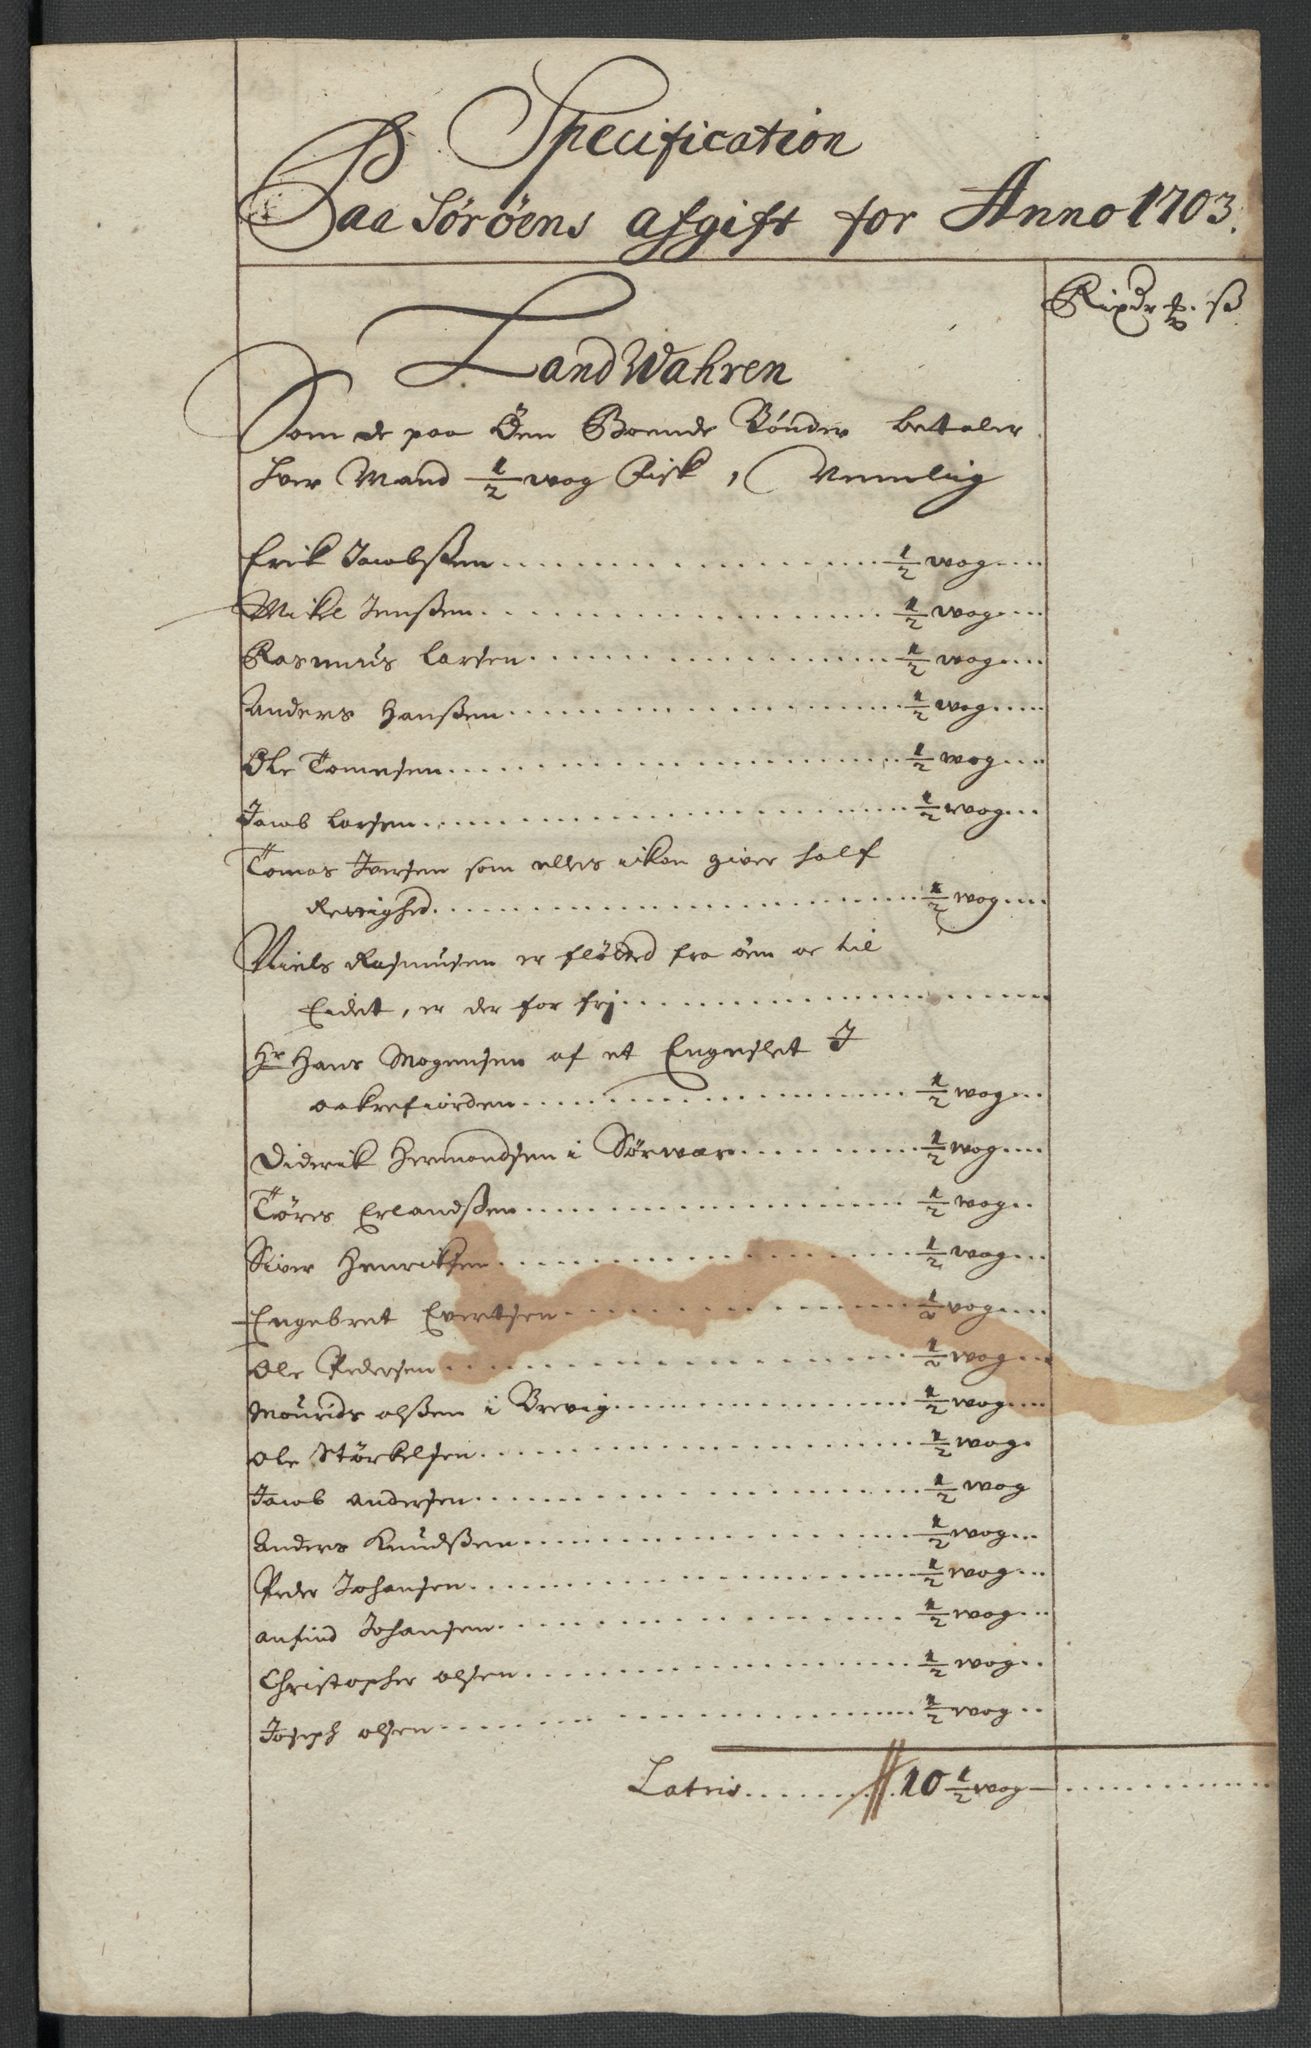 Specification
Paa Sørøens afgift for Anno 1703.
Rixdr ß
Land Wahren
Som de paa Öen Boende Bønder betaler
hver Mand 1/2 wog Fisk, Nemlig
Erik Jacobßen 1/2 wog
Mikel Jenßen 1/2 wog
Rasmus Larsen 1/2 wog
Anders Hanßen 1/2 wog
Ole Tomesen 1/2 wog
Jacob Larsen 1/2 wog
Tomas Iversen som ellers ikon giver half
Rettighed 1/2 wog
Niels Rasmusen er fløtted fra öen oc til
Eidet, er der for frj
Hr Hans Mogensen af et Engeslet I
aakrefiorden 1/2 wog
Diderik Hermandsen i Sørwær 1/2 wog
Töres Erlandßen 1/2 wog
Siver Henriksen 1/2 wog
Engebret Evertsen 1/2 wog
Ole Pedersen 1/2 wog
Mourids olßen i Brevig 1/2 wog
Ole Störkelsen 1/2 wog
Jacob Andersen 1/2 wog
Anders Knudßen 1/2 wog
Peder Johansen 1/2 wog
anfind Johansen 1/2 wog
Christopher olsen 1/2 wog
Joseph olsen 1/2 wog
Latris 10 1/2 wog